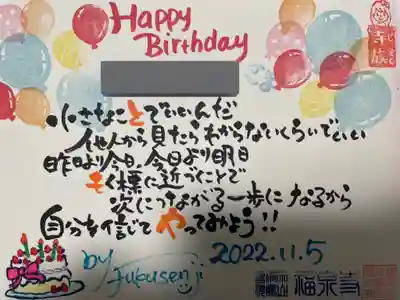 Happy
Birthday
小さなことでいいんだ
他人から見たらわからないくらいでいい
昨日より今日、今日より明日
もく標に近づくことで
次につながる一歩になるから
自分を信じてやってみよう!!
by Fukusenji
2022.11.5
福泉寺
寺族